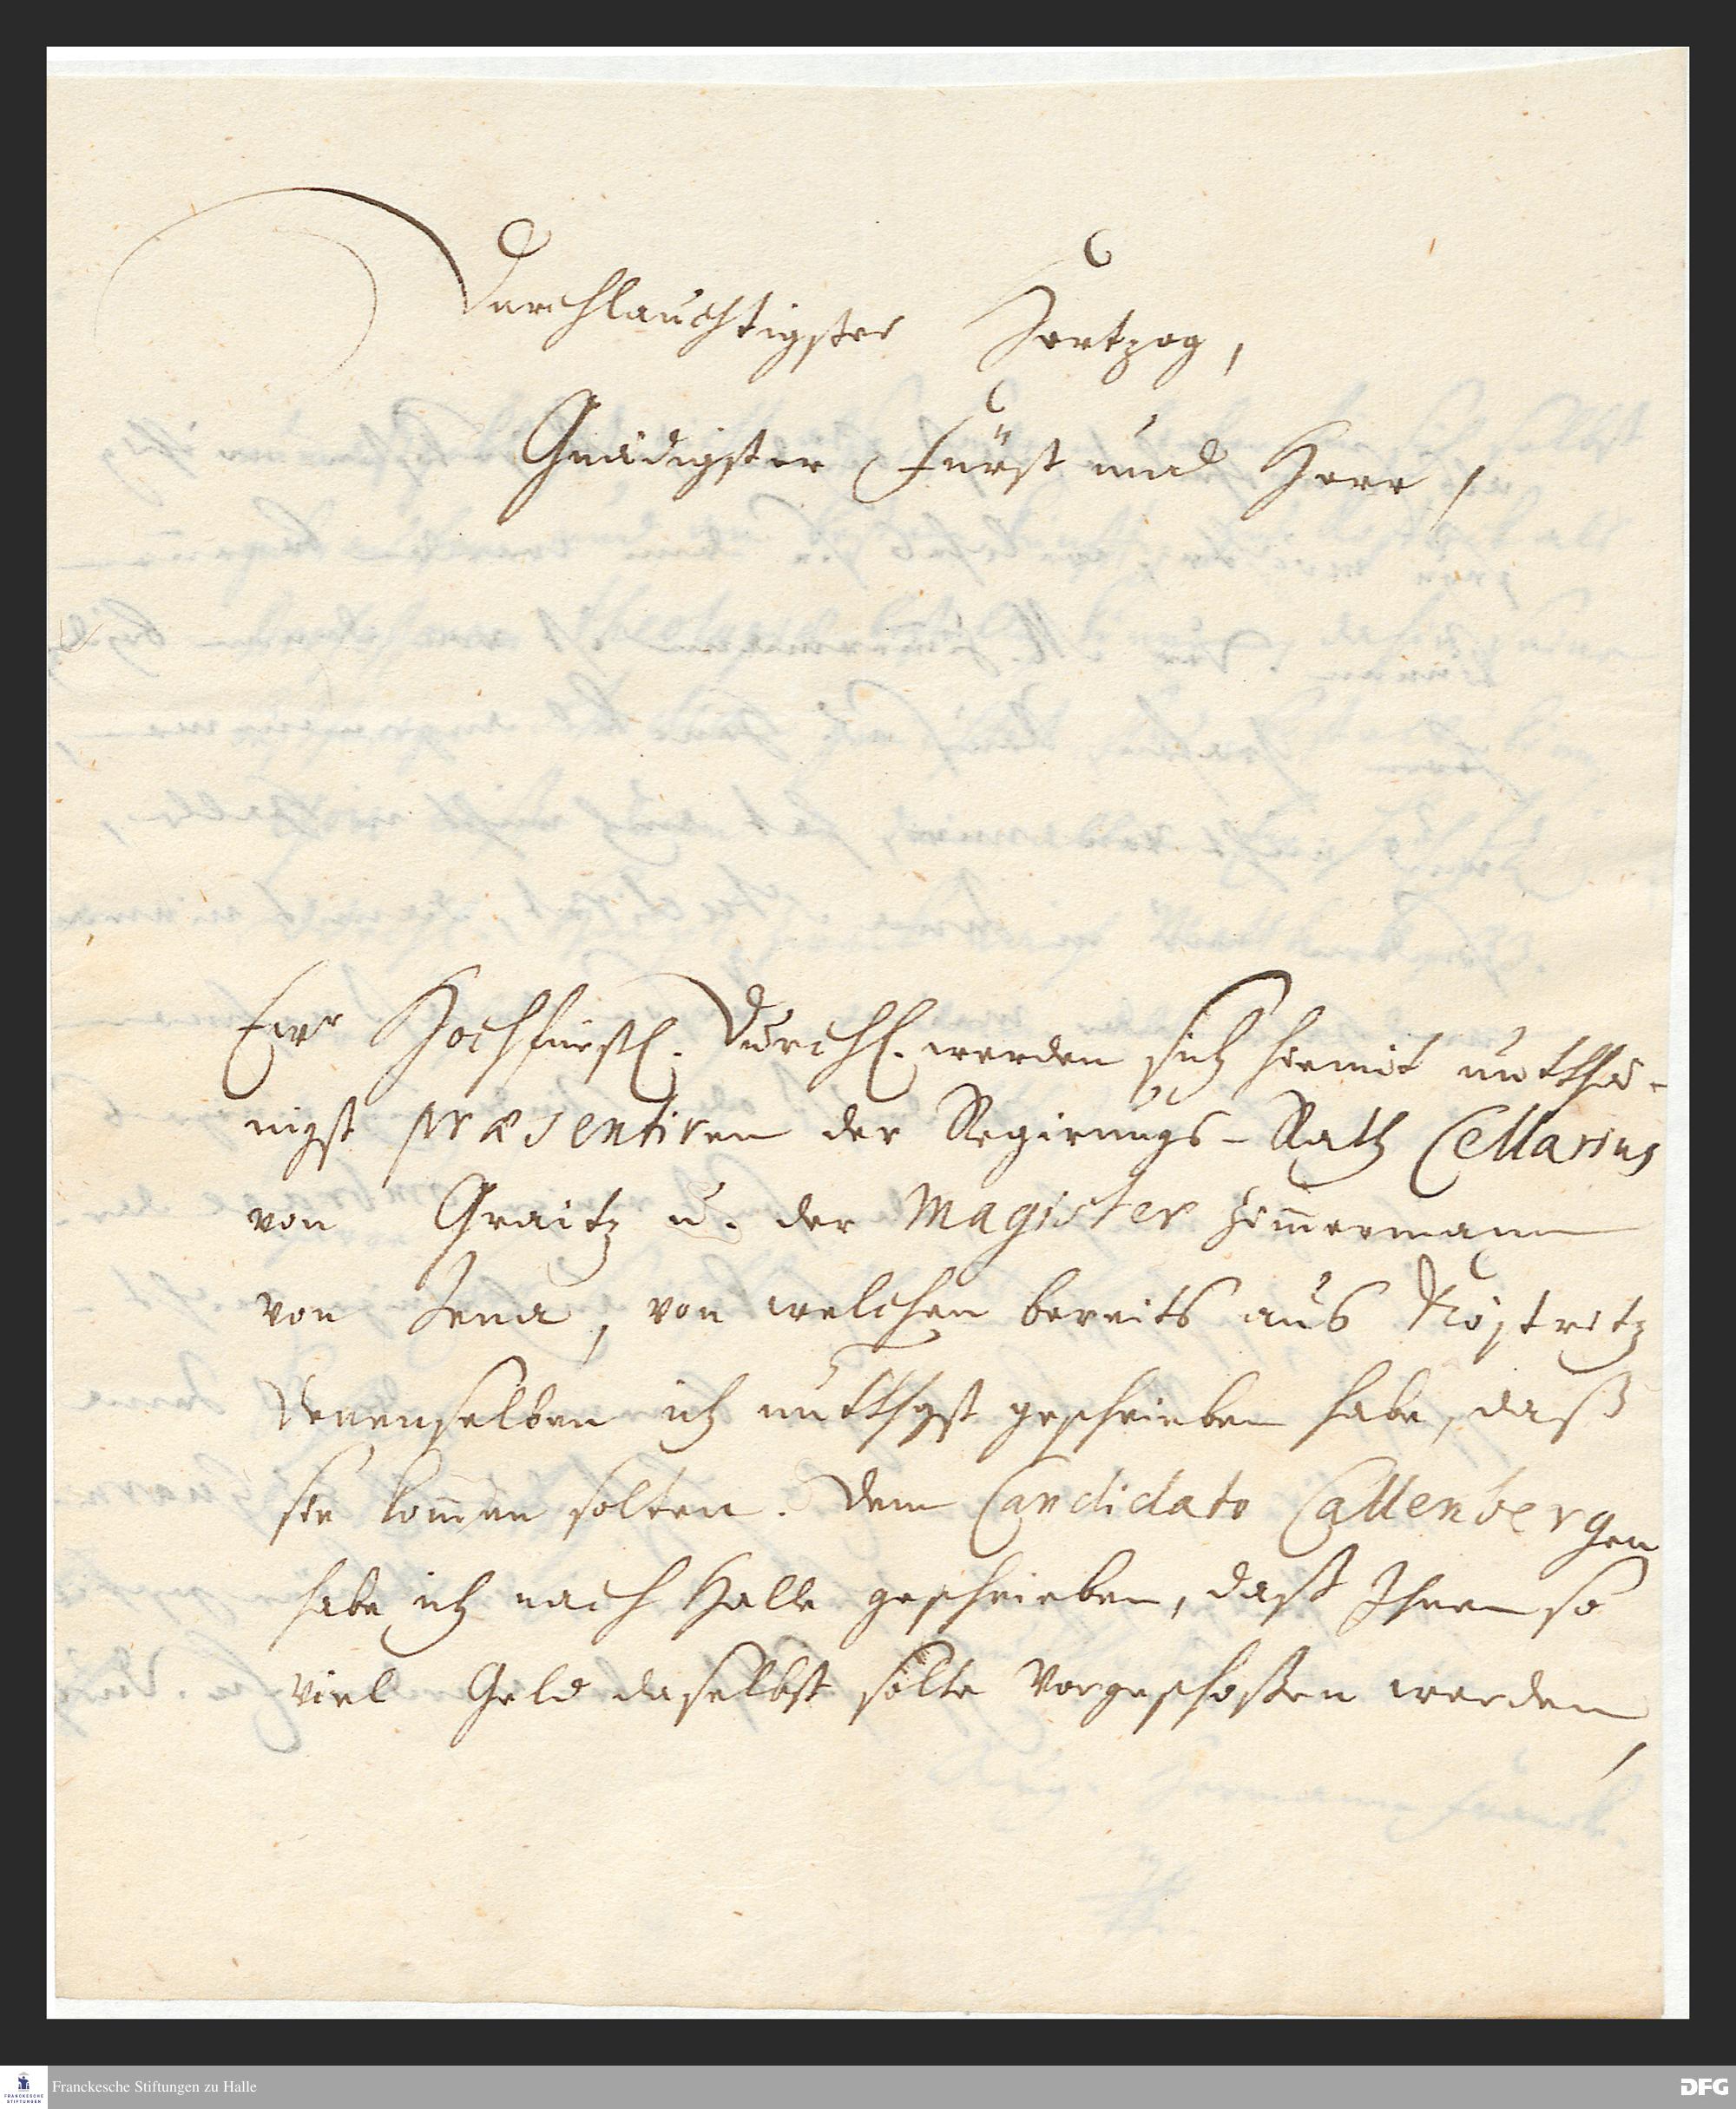 Durchlauchtigster Hertzog,
Gnädigster Fürst und Herr,
Ewr Hochfürstl. Durchl. werden sich hiemit untthä-
nigst præsentiren der Regirungs-Rath Cellarius
von Graitz u. der Magister Zimmermann
von Jena, von welchen bereits aus Köstritz
Denenselben ich untthgst geschrieben habe, daß
sie kommen solten. Dem Candidato Callenbergen
habe ich nach Halle geschrieben, daß Ihm so
viel Geld daselbst solte vorgeschoßen werden,
Franckesche Stiftungen zu Halle
FRANCKESCHE STIFTUNGEN
DFG